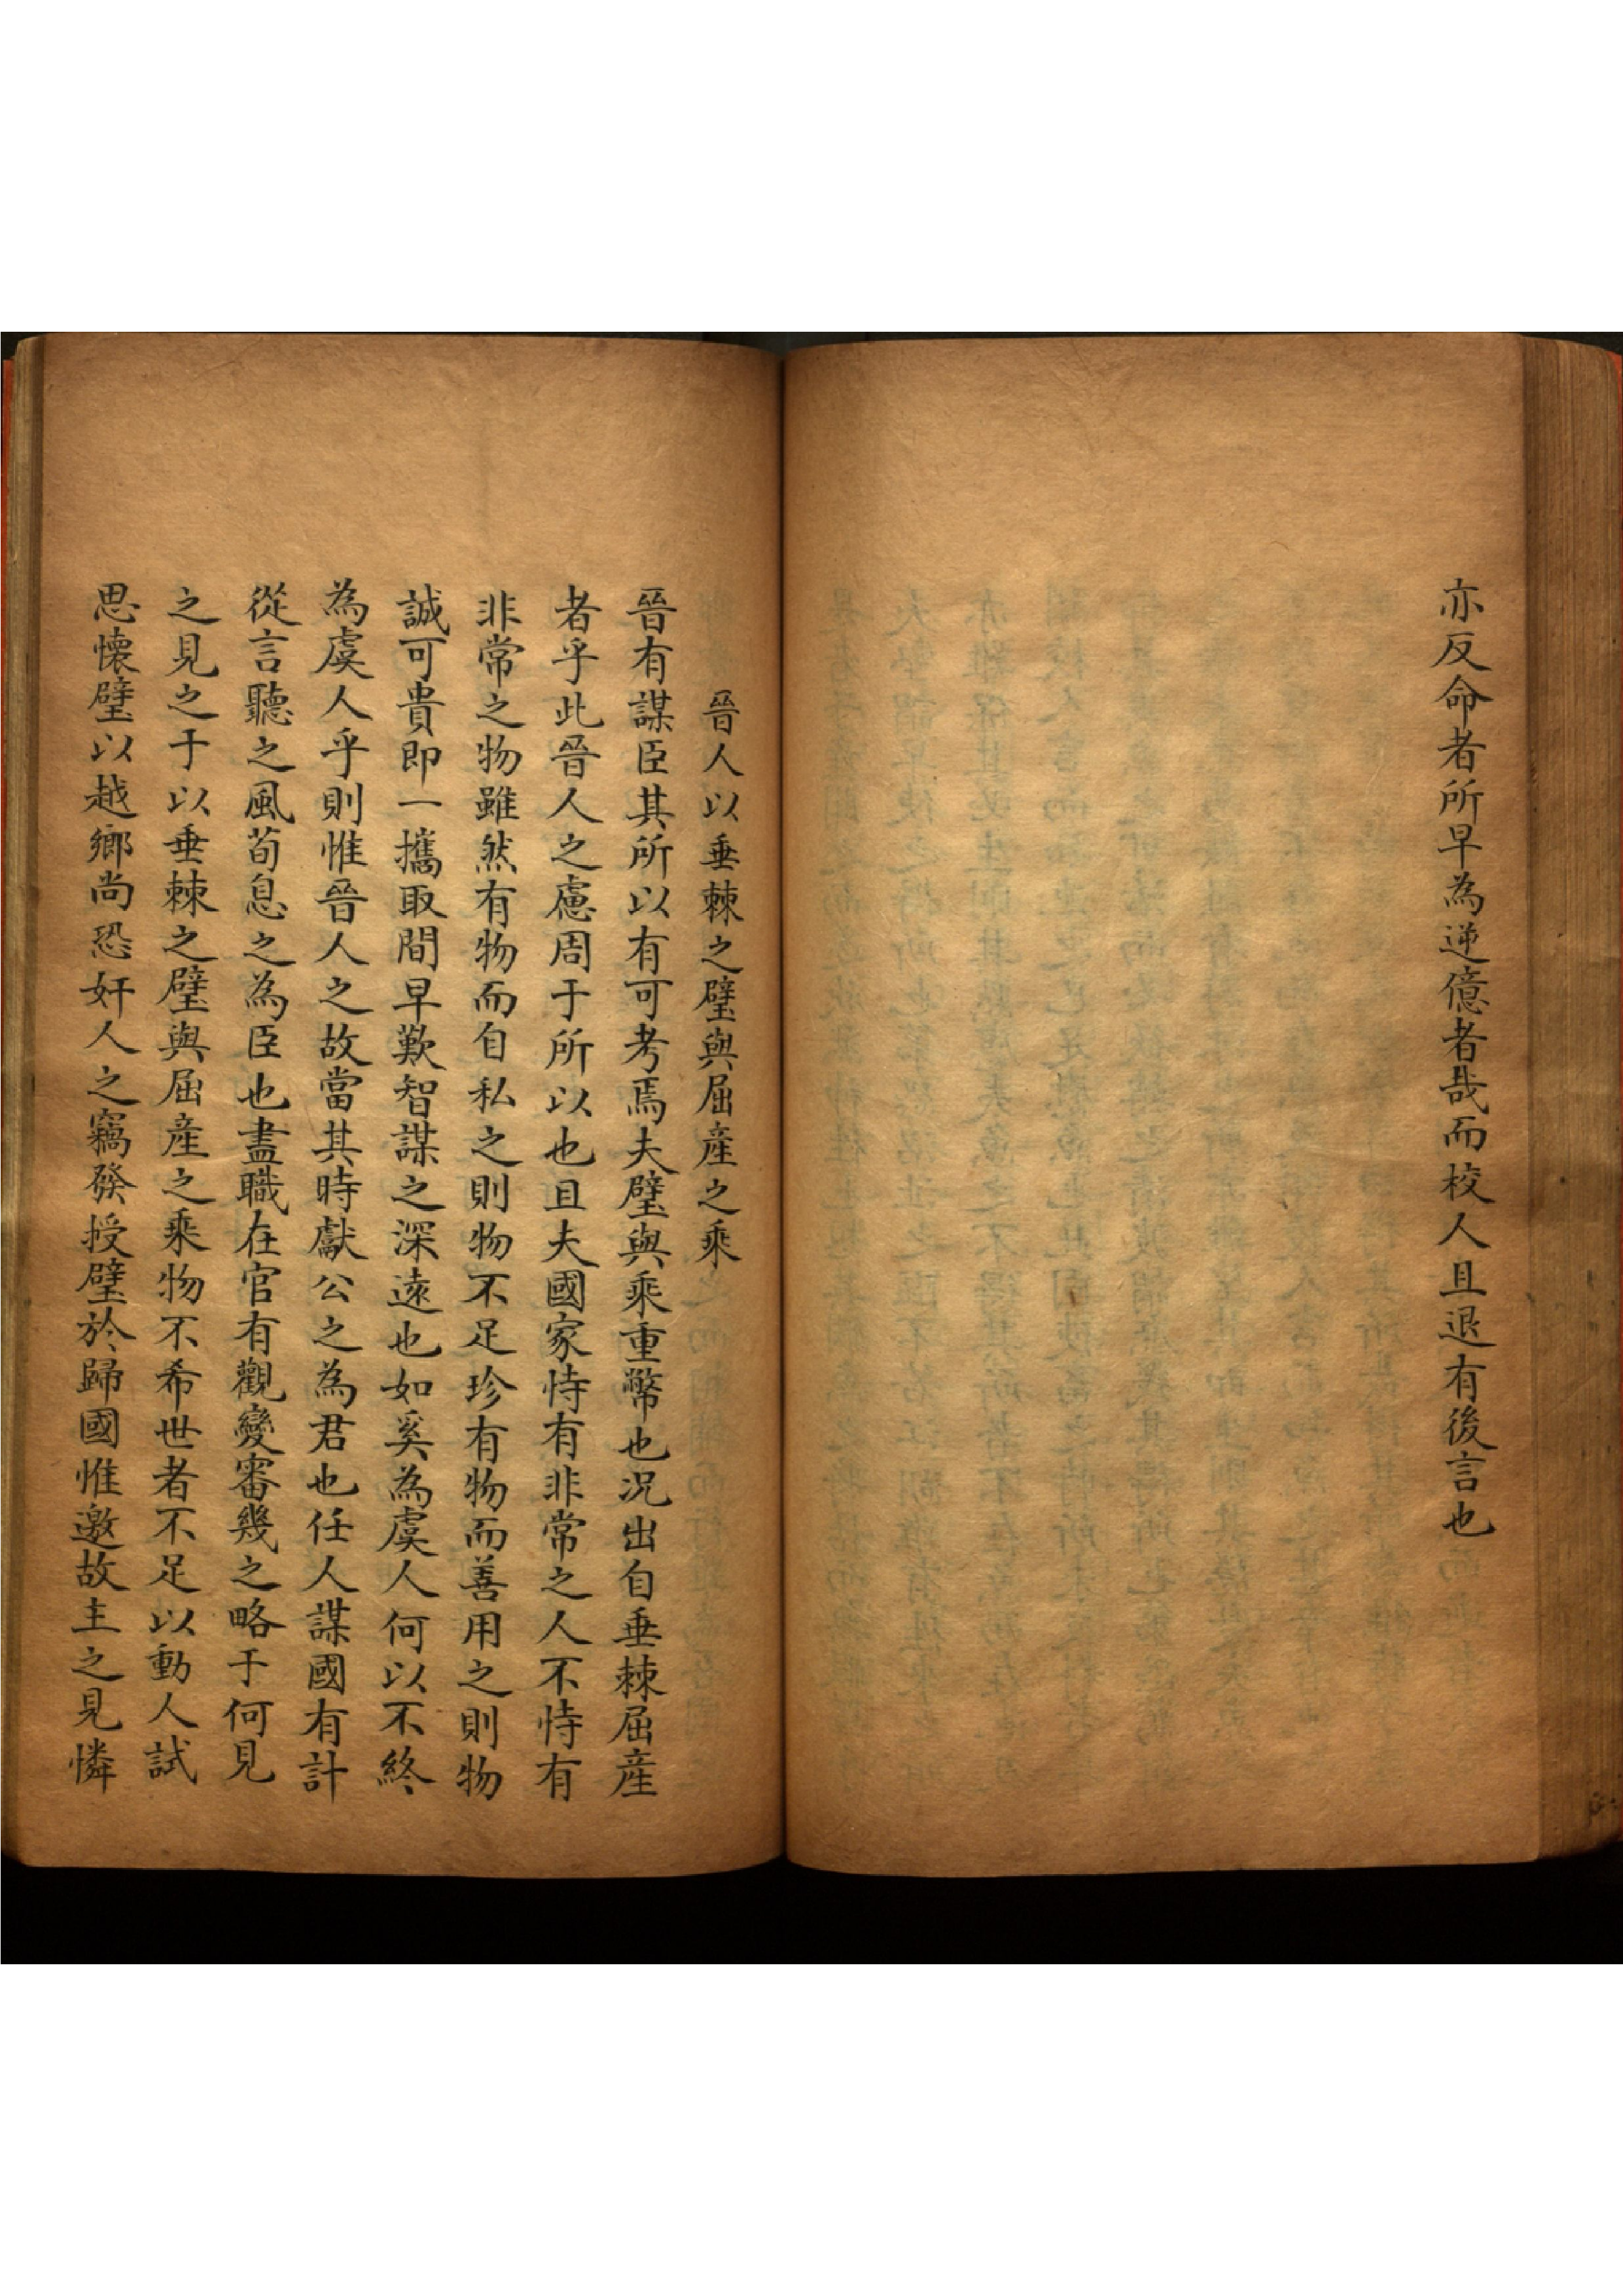 亦反命者所早為逆億者哉而校人且退有後言也
晉人以垂棘之璧與屈產之乘
晉有謀臣其所以有可考焉夫璧與乘重幣也況出自垂棘屈產
者乎此晉人之慮周于所以也且夫國家恃有非常之人不恃有
非常之物雖然有物而自私之則物不足珍有物而善用之則物
誠可貴即一攜取間早歎智謀之深遠也如奚為虞人何以不終
為虞人乎則惟晉人之故當其時獻公之為君也任人謀國有計
從言聽之風荀息之為臣也盡職在官有觀變審幾之略于何見
之見之于以垂棘之璧與屈產之乘物不希世者不足以動人試
思懷璧以越鄉尚恐奸人之竊發授璧於歸國惟邀故主之見憐